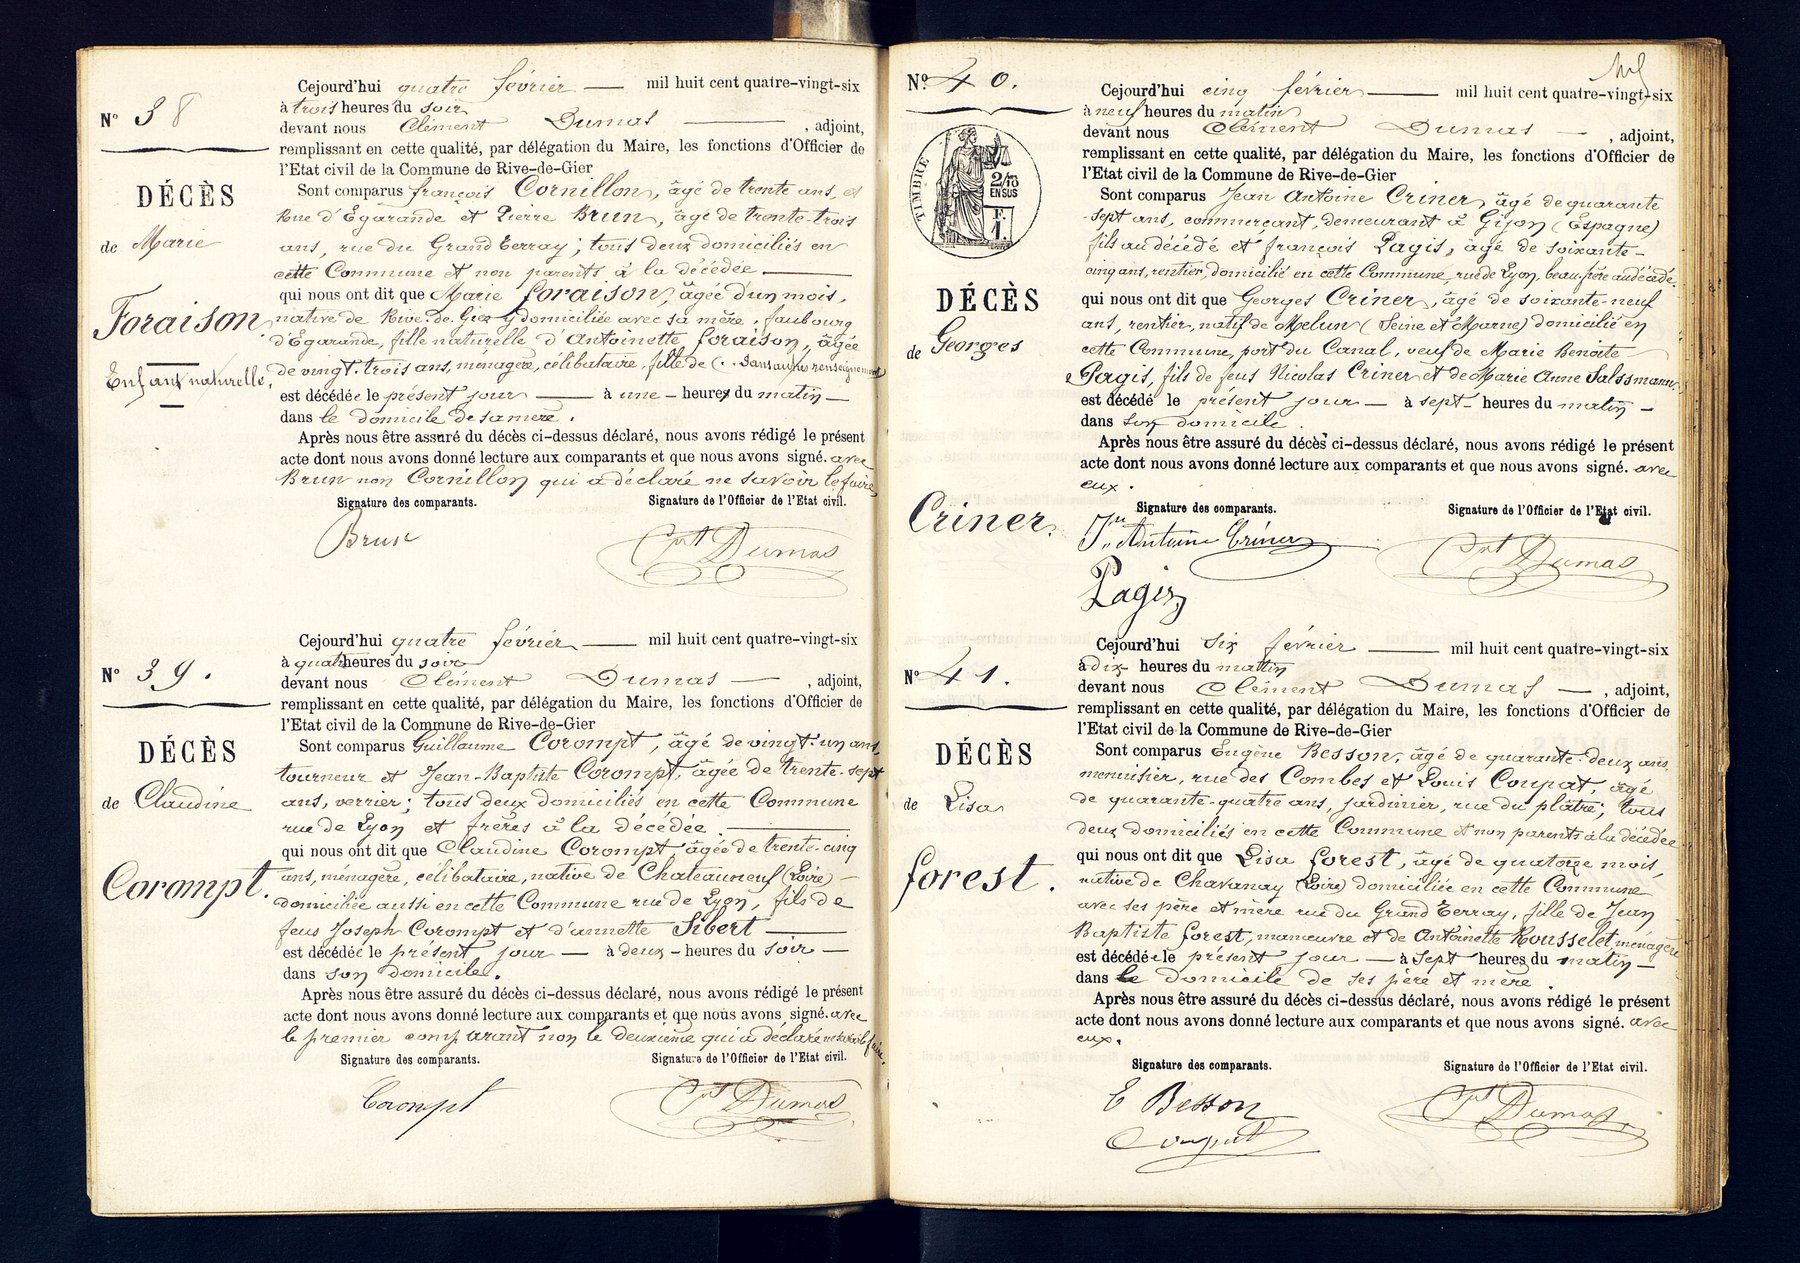 Cejourd'hui quatre février — mil huit cent quatre-vingt-six
N° 38
à trois heures du soir
devant nous Clément Dumas — , adjoint,
remplissant en cette qualité, par délégation du Maire, les fonctions d'Officier de
l'Etat civil de la Commune de Rive-de-Gier
DÉCÈS
Sont comparus françois Cornillon, âgé de trente ans, et
Rue d'Egarande et Pierre Brun, âgé de trente-trois
de Marie
ans, rue du Grand Terray; tous deux domiciliés en
cette Commune et non parents à la décédée —
qui nous ont dit que Marie foraison, âgée d'un mois,
Foraison
native de Rive-de-Gier y domiciliée avec sa mère, faubourg
d'Egarande, fille naturelle d'Antoinette foraison, âgée
de vingt-trois ans, ménagère, célibataire, fille de (.. Sans autres renseignements
Enfant naturelle.
est décédée le présent jour — à une - heures du matin —
dans le domicile de sa mère.
Après nous être assuré du décès ci-dessus déclaré, nous avons rédigé le présent
acte dont nous avons donné lecture aux comparants et que nous avons signé. avec
Brun non Cornillon qui a déclaré ne savoir le faire,
Signature des comparants. Signature de l'Officier de l'Etat civil.
Brun Cnt Dumas
Cejourd'hui quatre février — mil huit cent quatre-vingt-six
à quatre heures du soir
N° 39.
devant nous Clément Dumas — , adjoint,
remplissant en cette qualité, par délégation du Maire, les fonctions d'Officier de
l'Etat civil de la Commune de Rive-de-Gier
DÉCÈS
Sont comparus Guillaume Corompt, âgé de vingt-un ans,
tourneur et Jean-Baptiste Corompt, âgée de trente-sept
de Claudine
ans, verrier; tous deux domiciliés en cette Commune
rue de Lyon et frères à la décédée. —
qui nous ont dit que Claudine Corompt, âgée de trente-cinq
Corompt.
ans, ménagère, célibataire, native de Chateauneuf (Loire) -
domiciliée aussi en cette Commune rue de Lyon, fils de
feus Joseph Corompt et d'annette Sibert —
est décédée le présent jour — à deux - heures du soir —
dans son domicile.
Après nous être assuré du décès ci-dessus déclaré, nous avons rédigé le présent
acte dont nous avons donné lecture aux comparants et que nous avons signé. avec
le premier comparant non le deuxième qui a déclaré ne savoir le faire.
Signature des comparants. Signature de l'Officier de l'Etat civil.
Corompt Cnt Dumas
N° 40.
Cejourd'hui cinq février — mil huit cent quatre-vingt-six
à neuf heures du matin
devant nous Clément Dumas — , adjoint,
remplissant en cette qualité, par délégation du Maire, les fonctions d'Officier de
l'Etat civil de la Commune de Rive-de-Gier
TIMBRE
2/10
EN SUS
F.
1.
Sont comparus Jean Antoine Criner, âgé de quarante
-sept ans, commerçant, demeurant à Gijon (Espagne)
fils au décédé et françois Pagis, âgé de soixante-
cinq ans, rentier, domicilié en cette Commune, rue de Lyon, beau-frère au décédé
DÉCÈS
qui nous ont dit que Georges Criner, âgé de soixante-neuf
ans, rentier, natif de Melun (Seine et Marne) domicilié en
de Georges
cette Commune, port du Canal, veuf de Marie Benoite
Pagis, fils de feus Nicolas Criner et de Marie Anne Salssmann,
est décédé le présent jour — à sept - heures du matin —
dans son domicile.
Après nous être assuré du décès ci-dessus déclaré, nous avons rédigé le présent
acte dont nous avons donné lecture aux comparants et que nous avons signé. avec
eux.
Criner.
Signature des comparants. Signature de l'Officier de l'Etat civil.
Jn Antoine Criner Cnt Dumas
Pagis
Cejourd'hui six février — mil huit cent quatre-vingt-six
à dix heures du matin
N° 41.
devant nous Clément Dumas — , adjoint,
remplissant en cette qualité, par délégation du Maire, les fonctions d'Officier de
l'Etat civil de la Commune de Rive-de-Gier
DÉCÈS
Sont comparus Eugène Besson, âgé de quarante-deux ans,
menuisier, rue des Combes et Louis Coupat, âgé
de Lisa
de quarante-quatre ans, jardinier, rue du plâtre; tous
deux domiciliés en cette Commune et non parents à la décédée
qui nous ont dit que Lisa forest, âgé de quatorze mois,
forest.
native de Chavanay (Loire) domiciliée en cette Commune
avec ses père et mère rue du Grand Terray, fille de Jean
Baptiste forest, manœuvre et de Antoinette Rousselet, ménagère
est décédée le présent jour — à sept heures du matin —
dans le domicile de ses père et mère.
Après nous être assuré du décès ci-dessus déclaré, nous avons rédigé le présent
acte dont nous avons donné lecture aux comparants et que nous avons signé. avec
eux.
Signature des comparants. Signature de l'Officier de l'Etat civil.
E Besson Cnt Dumas
Coupat